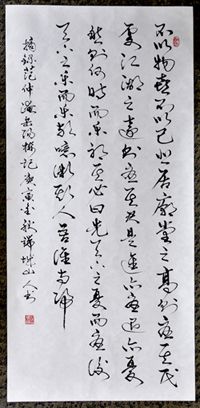 不以物喜不以己悲居廟堂之高則憂其民
處江湖之遠則憂其君是進亦憂退亦憂
然則何時而樂耶其必曰先天下之憂而憂後
天下之樂而樂歟噫微斯人吾誰與歸
摘錄范仲淹岳陽樓記庚寅孟秋瑞城山人书